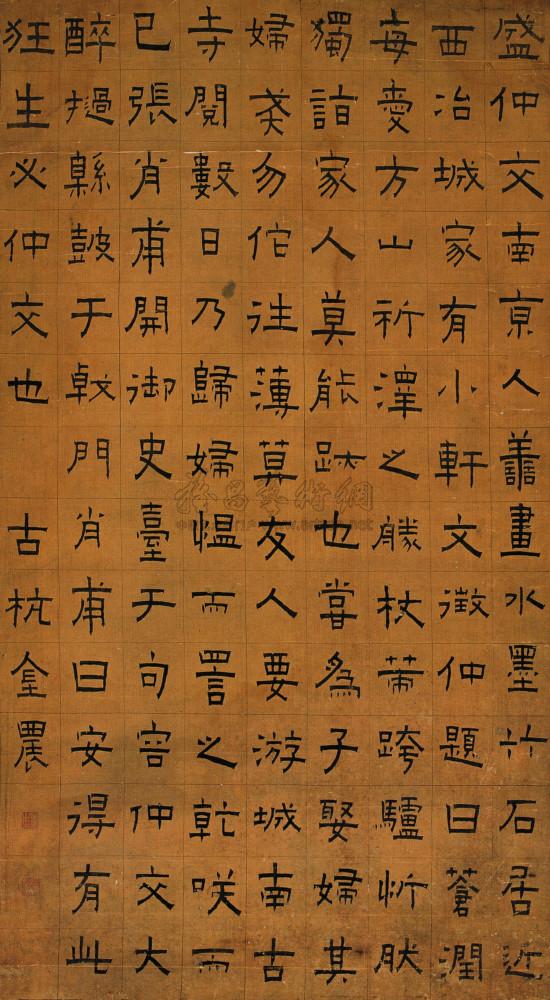 盛仲交南京人善畫水墨竹石居近
西冶城家有小軒文徵仲題曰蒼潤
每愛方山祈澤之勝杖策跨驢忻肰
獨詣家人莫能跡也嘗為子娶婦其
婦戒勿佗往薄莫友人要游城南古
寺閱數日乃歸婦慍而詈之乾咲而
已張肖甫開御史臺于句容仲交大
醉撾縣鼓于戟門肖甫曰安得有此
狂生必仲交也 古杭金農